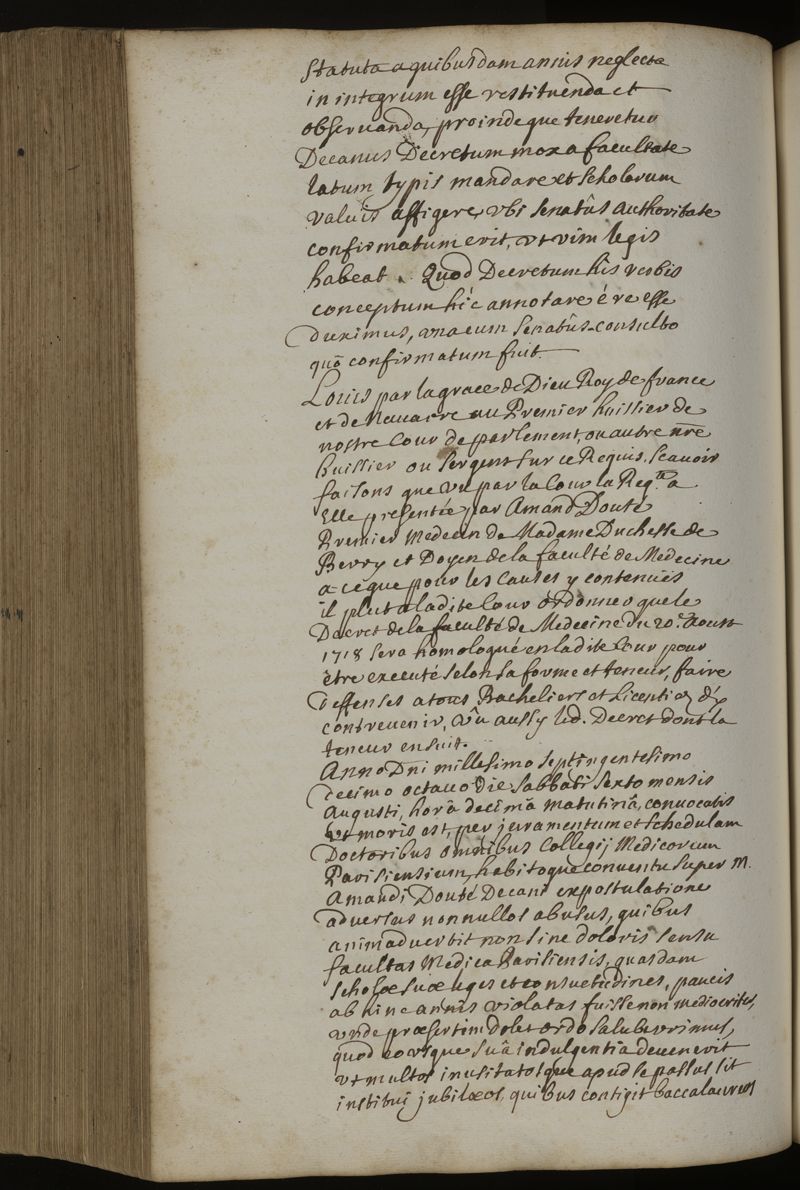 Statuta a quibusdam annis neglecta
in integrum esse restituenda et
observanda, proindeque teneretur
Decanus Decretum mox a facultate
latum typis mandare et scholarum
valvis affigere, ubi senatûs authoritate
confirmatum erit, ut vim legis
habeat. Quod Decretum his verbis
conceptum hîc annotare é re esse
duximus, una cum senatûs-consulto
quō confirmatum fuit.
Louis par la grace de Dieu Roy de france
et de Navarre au Premier huissier de
nostre Cour de parlement, ou autre nr̃e
huissier ou sergent sur ce Requis, scavoir
faisons que vu par la Cour la Reqte. a
Elle presentée par Amand Douté
Premier Medecin de Madame Duchesse de
Berry et Doyen de la faculté de Medecine
a ce que pour les Causes y contenües
il plut a ladite Cour ordonner que le
Decret de la faculté de Medecine du 20e. Aoust
1718 sera homologué en ladite Cour pour
être executé selon sa forme et teneur, faire
deffenses a tous Bacheliers et Licentiez d'y
contrevenir, Vû aussy led. Decret dont la
teneur ensuit.
Anno Dni millesimo septingentesimo
decimo octavo die sabbati sexto mensis
Augusti, horâ decimâ matutinâ, convocatis
ut moris est, per juramentum et schedulam
Doctoribus omnibus Collegij Medicorum
Parisiensium, habitoque conventu super M.
Amandi Douté Decani expostulatione
adversus nonnullos abusus, quibus
animadvertit non sine doloris sensu
facultas Medica Parisiensis, quasdam
scholæ suæ leges et consuetudines, paucis
ab hinc annis violatas fuisse non mediocriter,
unde præsertim dolet ordo saluberrimus,
quod eo usque suâ indulgentiâ devenerit
ut multos inusitatosque apud se passus sit
institui jubilæos, quibus contigit baccalaureos